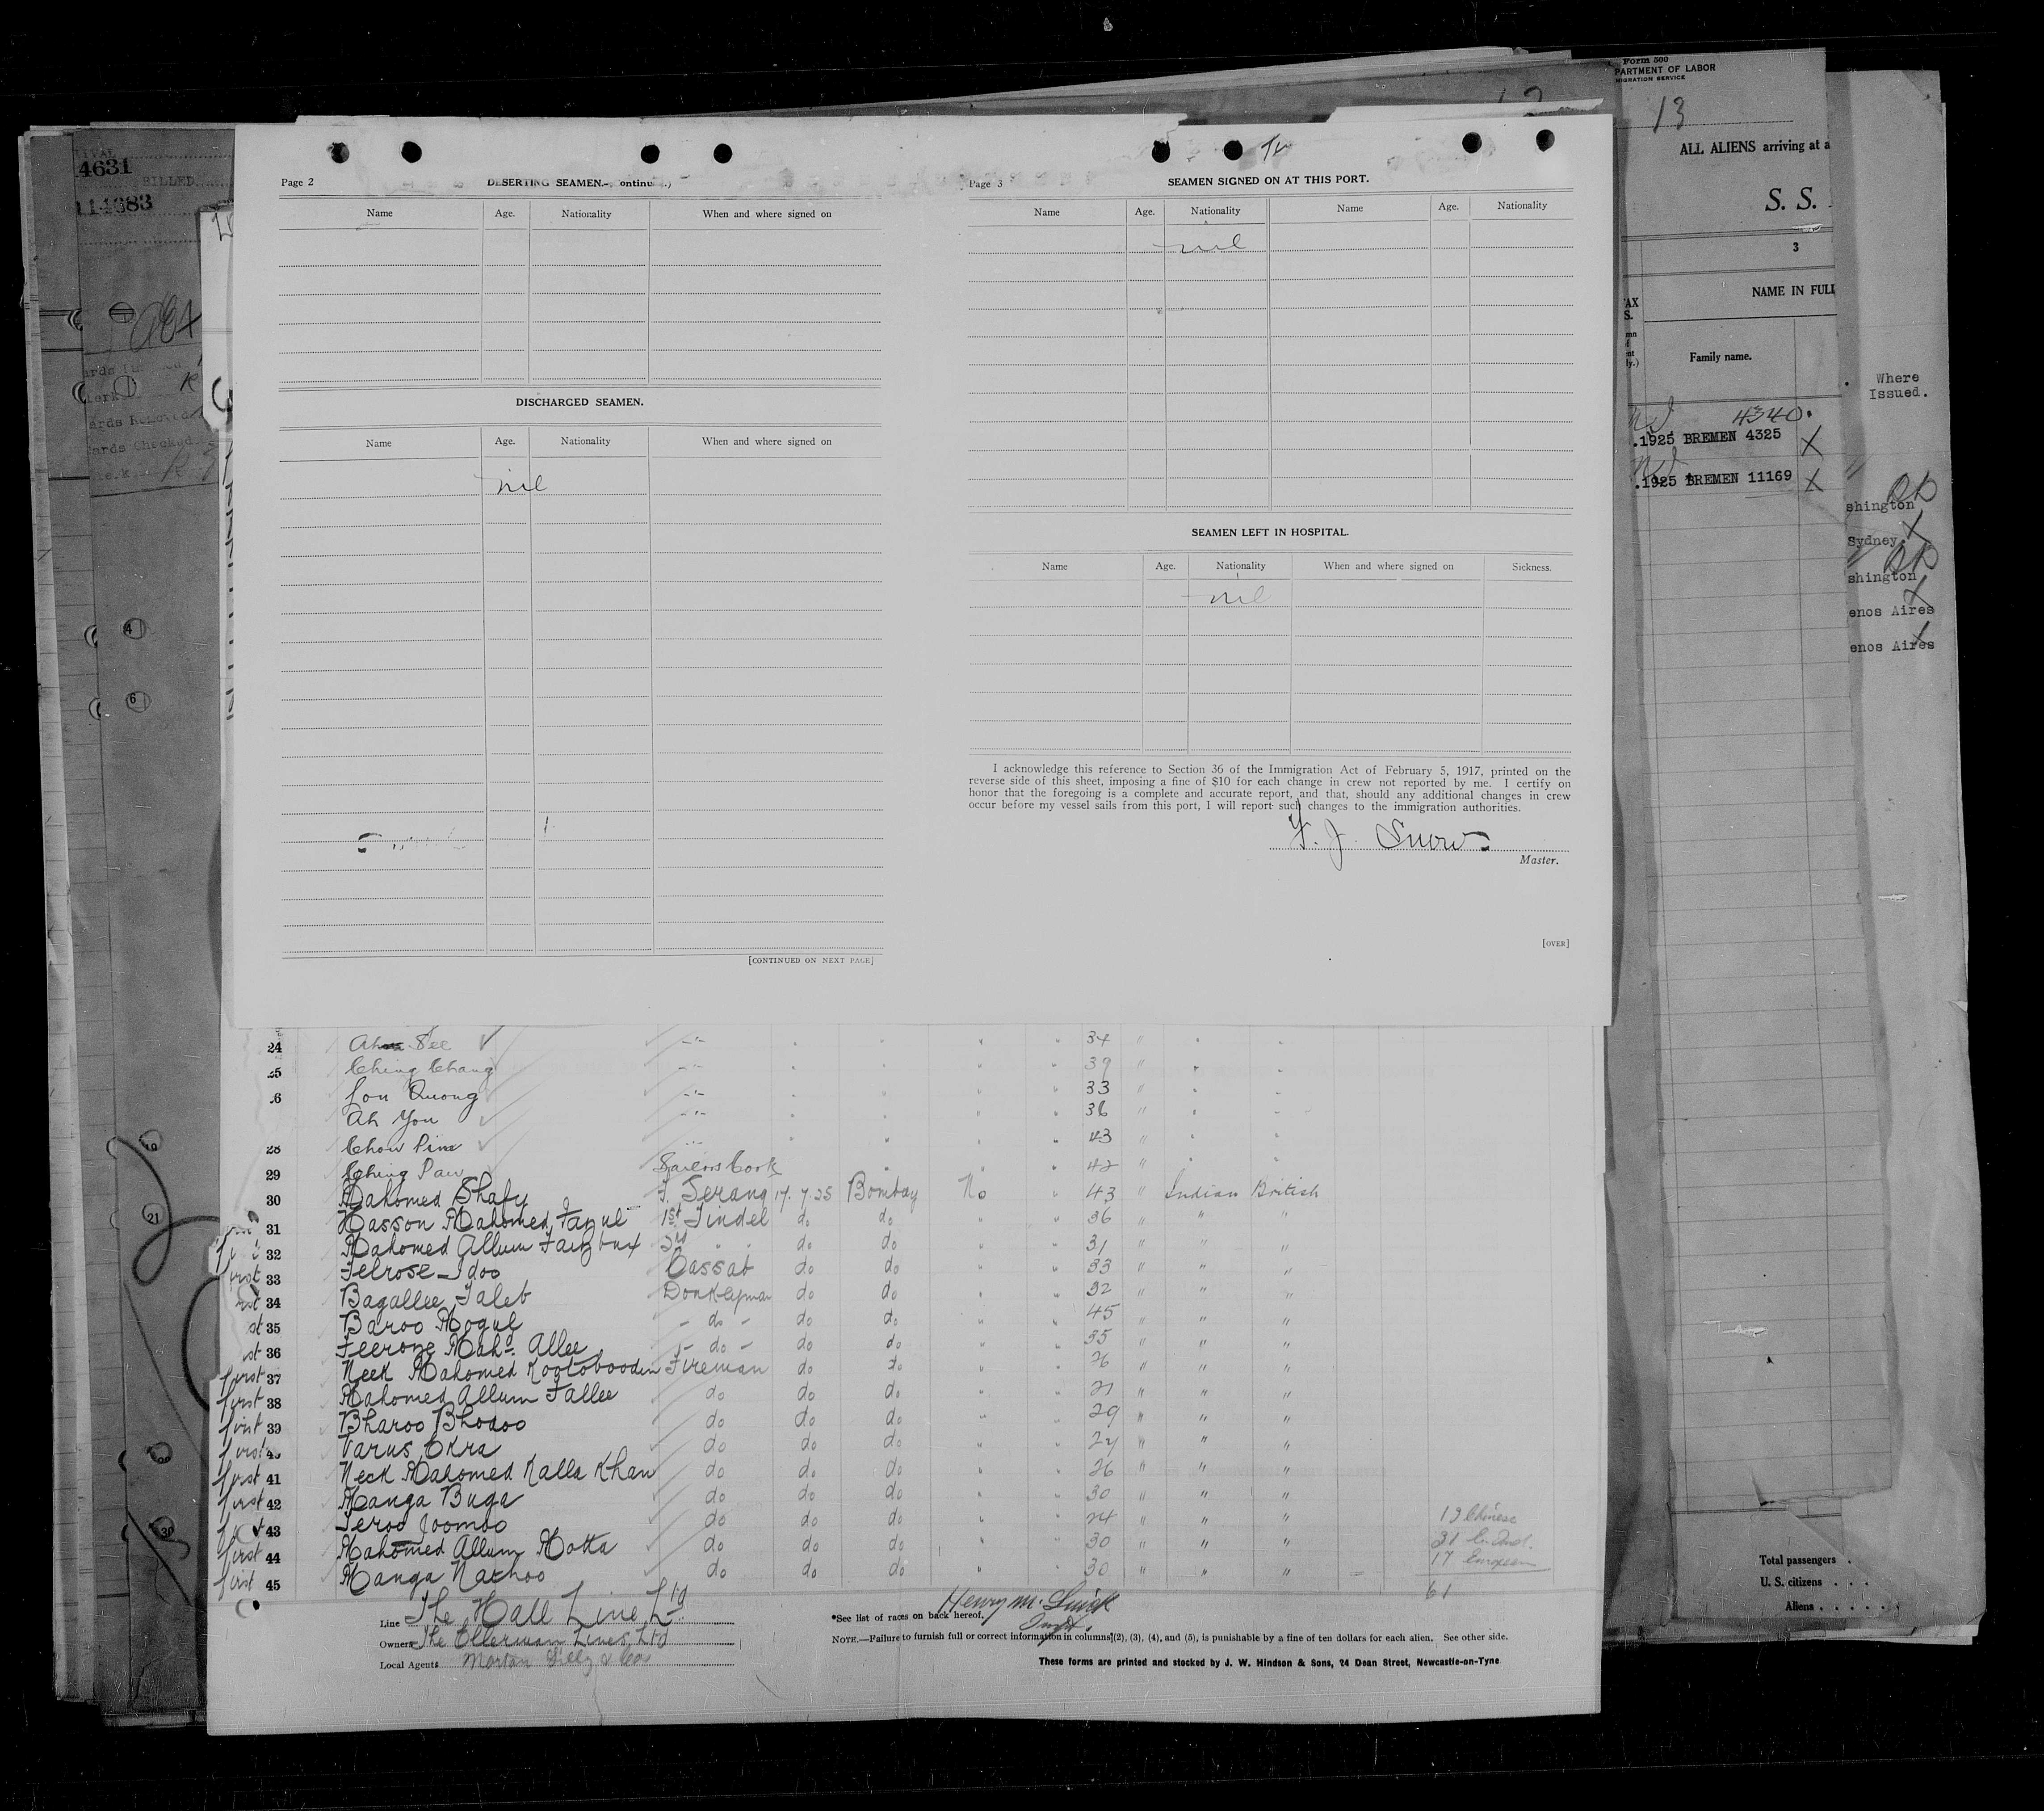 Page 2
DESERTING SEAMEN.
Name Age. Nationality When and where signed on
DISCHARGED SEAMEN.
Name Age. Nationality When and where signed on
nil
[CONTINUED ON NEXT PAGE]
Page 3
SEAMEN SIGNED ON AT THIS PORT.
Name Age. Nationality Name Age. Nationality
nil
SEAMEN LEFT IN HOSPITAL.
Name Age. Nationality When and where signed on Sickness.
nil
I acknowledge this reference to Section 36 of the Immigration Act of February 5, 1917, printed on the
reverse side of this sheet, imposing a fine of $10 for each change in crew not reported by me. I certify on
honor that the foregoing is a complete and accurate report, and that, should any additional changes in crew
occur before my vessel sails from this port, I will report such changes to the immigration authorities.
F. J. Snow
Master.
[OVER]
24 Ah See 34 "
Ching Chang 39 "
Lou Quong 33 "
Ah You 36 "
28 Chow 43 "
29 Ching Paw Sailors Cook 42 "
30 Mahomed Shafy F. Serang 17.7.25 Bombay No " 43 " Indian British
31 Hasson Mahomed 1st Tindel do do " " 36 " " "
32 Mahomed Allum 2nd " " do do " " 31 " " "
first 33 Felrose Idoo Cassab do do " " 33 " " "
34 Bagallee Taleb Donkeyman do do " " 32 " " "
35 Baroo Mogul - do - do do " " 45 " " "
36 Feeroze Mahd. Allee - do - do do " " 35 " " "
first 37 Neek Mahomed Kootobooden Fireman do do " " 26 " " "
first 38 Mahomed Allum Fallee do do do " " 21 " " "
first 39 Bharoo Bhodoo do do do " " 29 " " "
first Varus Okra do do do " " 24 " " "
first 41 Neck Mahomed Kalla Khan do do do " " 26 " " "
first 42 Manga Buga do do do " " 30 " " "
43 Feroo Joomoo do do do " " 24 " " "
first 44 Mahomed Allum Motta do do do " " 30 " " "
first 45 Manga Nathoo do do do " " 30 " " "
13 Chinese
31
17 European
61
Line The Hall Line Ltd
Owners The Ellerman Lines, Ltd
Local Agents
Henry M.
*See list of races on back hereof.
NOTE.—Failure to furnish full or correct information in columns (2), (3), (4), and (5), is punishable by a fine of ten dollars for each alien. See other side.
These forms are printed and stocked by J. W. Hindson & Sons, 24 Dean Street, Newcastle-on-Tyne
4631
BILLED
114383
4
6
21
30
Form 500
PARTMENT OF LABOR
MIGRATION SERVICE
13
ALL ALIENS arriving at a
S. S.
3
NAME IN FULL
Family name.
4340
.1925 BREMEN 4325 X
.1925 BREMEN 11169 X
Where
Issued.
shington
Sydney.
shington
enos Aires
enos Aires
Total passengers . .
U. S. citizens . . .
Aliens . . . . . .